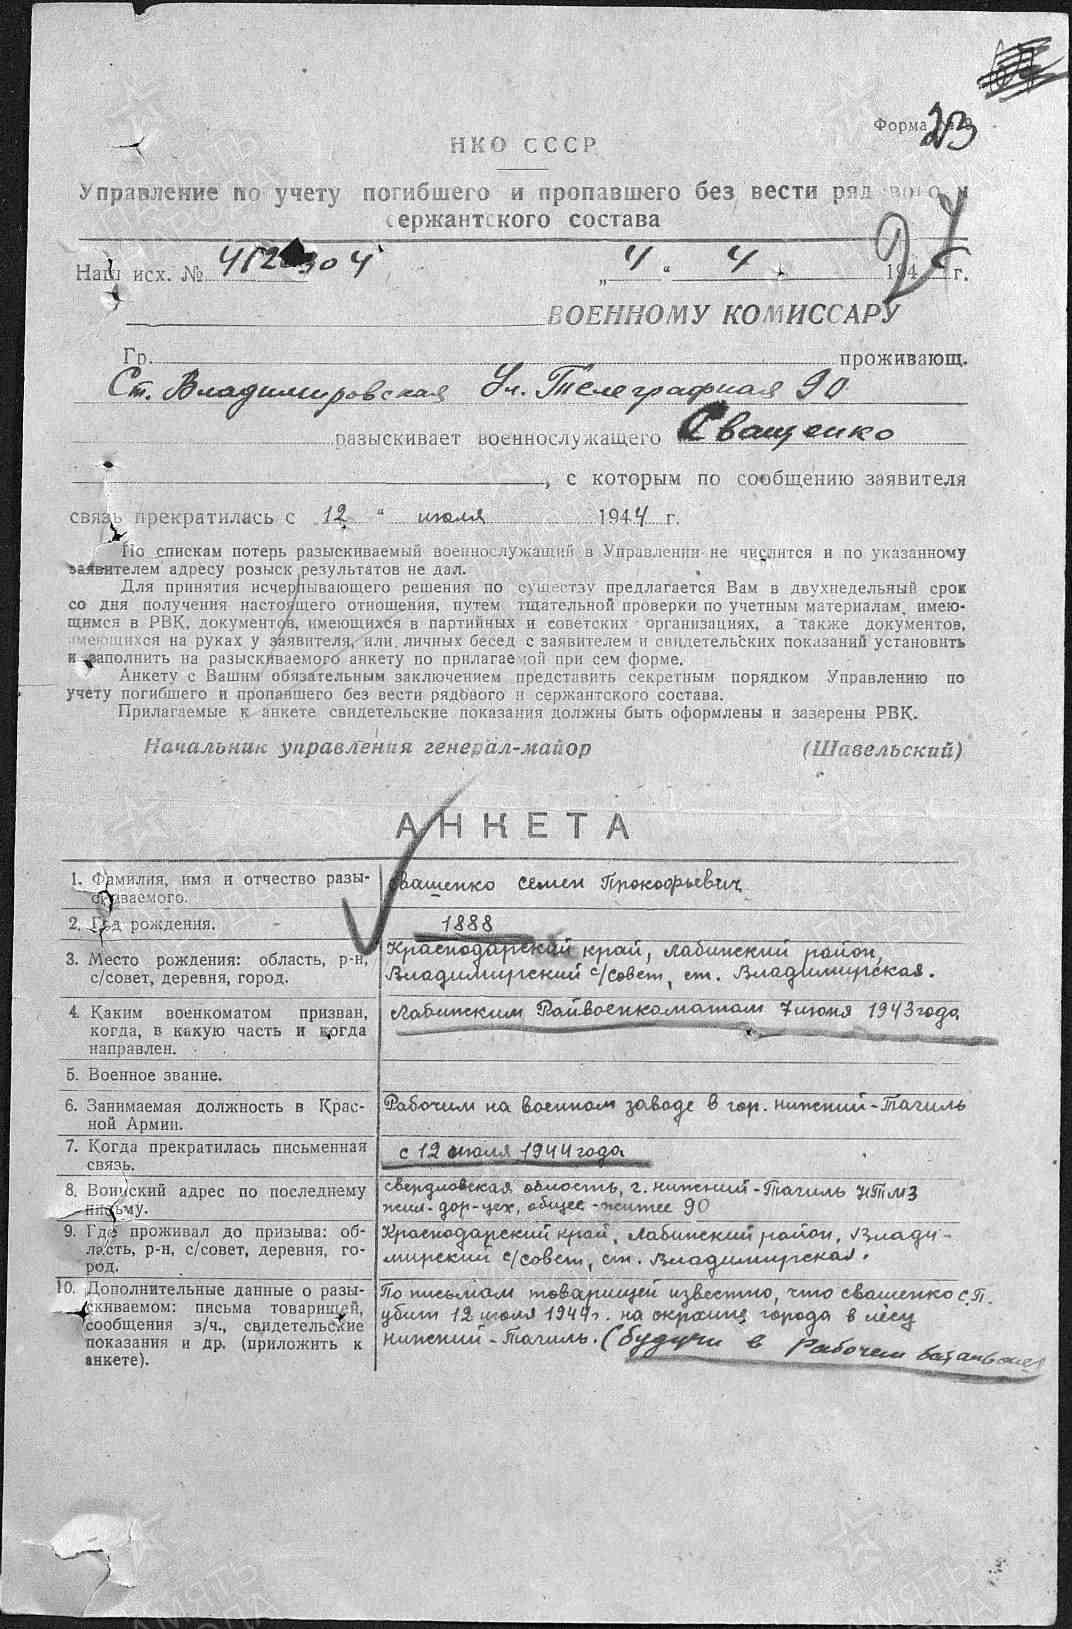 Форма
23
НКО СССР
Управление по учету погибшего и пропавшего без вести рядового и
сержантского состава
Наш исх. № „4“ 4 194 г.
ВОЕННОМУ КОМИССАРУ
Гр. проживающ.
Ст. Владимировская Ул. Телеграфная 90
разыскивает военнослужащего Сващенко
, с которым по сообщению заявителя
связь прекратилась с 12 “ июля 1944 г.
По спискам потерь разыскиваемый военнослужащий в Управлении не числится и по указанному
заявителем адресу розыск результатов не дал.
Для принятия исчерпывающего решения по существу предлагается Вам в двухнедельный срок
со дня получения настоящего отношения, путем тщательной проверки по учетным материалам, имею-
щимся в РВК, документов, имеющихся в партийных и советских организациях, а также документов,
имеющихся на руках у заявителя, или личных бесед с заявителем и свидетельских показаний установить
и заполнить на разыскиваемого анкету по прилагаемой при сем форме.
Анкету с Вашим обязательным заключением представить секретным порядком Управлению по
учету погибшего и пропавшего без вести рядового и сержантского состава.
Прилагаемые к анкете свидетельские показания должны быть оформлены и заверены РВК.
Начальник управления генерал-майор (Шавельский)
АНКЕТА
1. Фамилия, имя и отчество разы-
скиваемого.
Сващенко Семен Прокофьевич
2. Год рождения.
1888
3. Место рождения: область, р-н,
с/совет, деревня, город.
Краснодарский край, Лабинский район,
Владимирский с/совет, ст. Владимирская.
4. Каким военкоматом призван,
когда, в какую часть и когда
направлен.
Лабинским Райвоенкоматом 7 июня 1943 года
5. Военное звание.
6. Занимаемая должность в Крас-
ной Армии.
Рабочим на военном заводе в гор. Нижний-Тагиль
7. Когда прекратилась письменная
связь.
с 12 июля 1944 года
8. Воинский адрес по последнему
письму.
Свердловская область, г. Нижний-Тагиль НТМЗ
жил-дор-цех, общее-житее 90
9. Где проживал до призыва: об-
ласть, р-н, с/совет, деревня, го-
род.
Краснодарский край, Лабинский район, Влади-
мирский с/совет, ст. Владимирская.
10. Дополнительные данные о разы-
скиваемом: письма товарищей,
сообщения з/ч., свидетельские
показания и др. (приложить к
анкете).
По письмам товарищей известно, что Сващенко С.П.
убит 12 июля 1944 г. на окраине города в лесу
Нижний-Тагиль. (будучи в Рабочем батальоне)